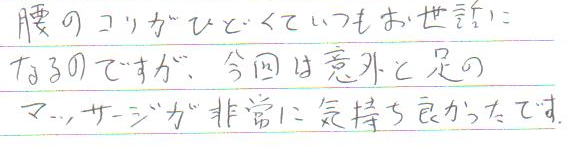 腰のコリがひどくていつもお世話に
なるのですが、今回は意外と足の
マッサージが非常に気持ち良かったです.